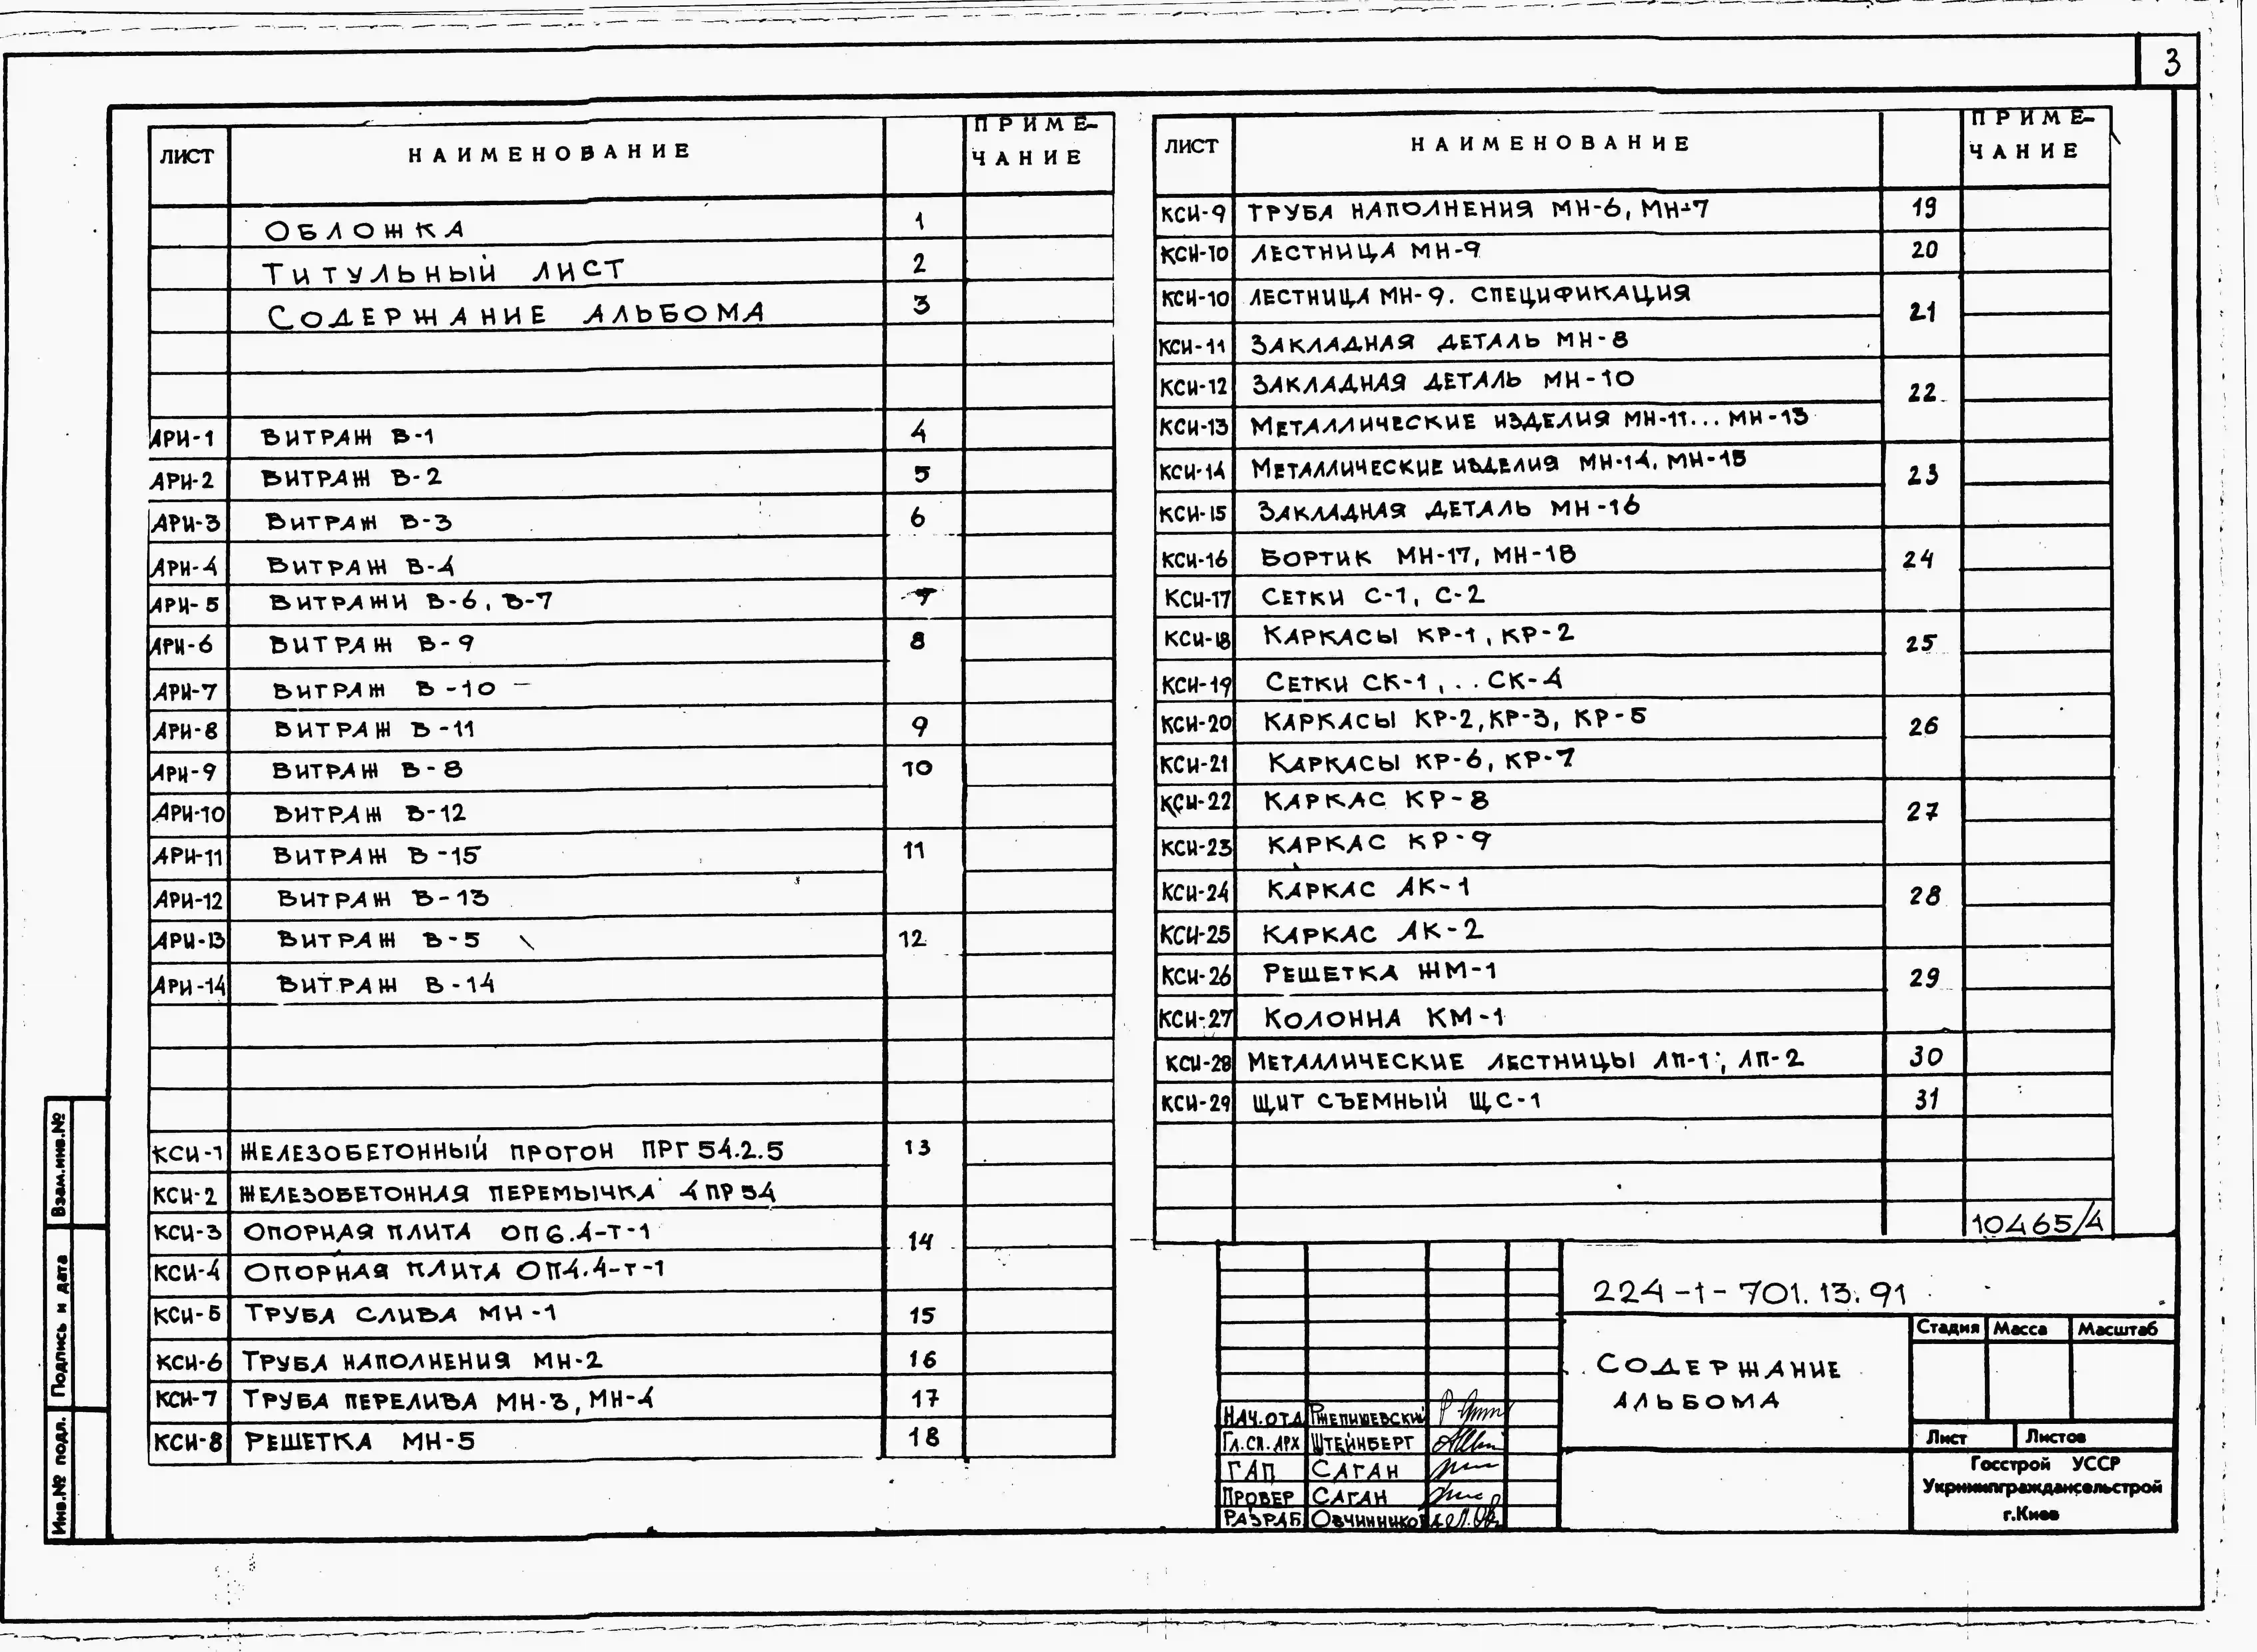 3
ЛИСТ НАИМЕНОВАНИЕ ПРИМЕ-
ЧАНИЕ
ОБЛОЖКА 1
ТИТУЛЬНЫЙ ЛИСТ 2
СОДЕРЖАНИЕ АЛЬБОМА 3
АРИ-1 ВИТРАЖ В-1 4
АРИ-2 ВИТРАЖ В-2 5
АРИ-3 ВИТРАЖ В-3 6
АРИ-4 ВИТРАЖ В-4
АРИ-5 ВИТРАЖИ В-6, В-7 7
АРИ-6 ВИТРАЖ В-9 8
АРИ-7 ВИТРАЖ В-10
АРИ-8 ВИТРАЖ В-11 9
АРИ-9 ВИТРАЖ В-8 10
АРИ-10 ВИТРАЖ В-12
АРИ-11 ВИТРАЖ В-15 11
АРИ-12 ВИТРАЖ В-13
АРИ-13 ВИТРАЖ В-5 12
АРИ-14 ВИТРАЖ В-14
КСИ-1 ЖЕЛЕЗОБЕТОННЫЙ ПРОГОН ПРГ 54.2.5 13
КСИ-2 ЖЕЛЕЗОБЕТОННАЯ ПЕРЕМЫЧКА 4ПР54
КСИ-3 ОПОРНАЯ ПЛИТА ОП6.4-Т-1 14
КСИ-4 ОПОРНАЯ ПЛИТА ОП4.4-Т-1
КСИ-5 ТРУБА СЛИВА МН-1 15
КСИ-6 ТРУБА НАПОЛНЕНИЯ МН-2 16
КСИ-7 ТРУБА ПЕРЕЛИВА МН-3, МН-4 17
КСИ-8 РЕШЕТКА МН-5 18
ЛИСТ НАИМЕНОВАНИЕ ПРИМЕ-
ЧАНИЕ
КСИ-9 ТРУБА НАПОЛНЕНИЯ МН-6, МН-7 19
КСИ-10 ЛЕСТНИЦА МН-9 20
КСИ-10 ЛЕСТНИЦА МН-9. СПЕЦИФИКАЦИЯ 21
КСИ-11 ЗАКЛАДНАЯ ДЕТАЛЬ МН-8
КСИ-12 ЗАКЛАДНАЯ ДЕТАЛЬ МН-10 22
КСИ-13 МЕТАЛЛИЧЕСКИЕ ИЗДЕЛИЯ МН-11...МН-13
КСИ-14 МЕТАЛЛИЧЕСКИЕ ИЗДЕЛИЯ МН-14, МН-15 23
КСИ-15 ЗАКЛАДНАЯ ДЕТАЛЬ МН-16
КСИ-16 БОРТИК МН-17, МН-18 24
КСИ-17 СЕТКИ С-1, С-2
КСИ-18 КАРКАСЫ КР-1, КР-2 25
КСИ-19 СЕТКИ СК-1,..СК-4
КСИ-20 КАРКАСЫ КР-2, КР-3, КР-5 26
КСИ-21 КАРКАСЫ КР-6, КР-7
КСИ-22 КАРКАС КР-8 27
КСИ-23 КАРКАС КР-9
КСИ-24 КАРКАС АК-1 28
КСИ-25 КАРКАС АК-2
КСИ-26 РЕШЕТКА ЖМ-1 29
КСИ-27 КОЛОННА КМ-1
КСИ-28 МЕТАЛЛИЧЕСКИЕ ЛЕСТНИЦЫ ЛП-1; ЛП-2 30
КСИ-29 ЩИТ СЪЕМНЫЙ ЩС-1 31
10465/4
224-1-701.13.91
СОДЕРЖАНИЕ
АЛЬБОМА
Стадия Масса Масштаб
Лист Листов
Госстрой УССР
Укрниипграждансельстрой
г.Киев
НАЧ.ОТД РЖЕПИШЕВСКИЙ
ГЛ.СП.АРХ ШТЕЙНБЕРГ
ГАП САГАН
ПРОВЕР САГАН
РАЗРАБ ОВЧИННИКОВА
Взам.инв.№
Подпись и дата
Инв.№ подл.